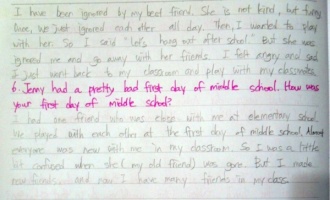 I have been ignored by my best friend. She is not kind, but funny
Once, we just ignored each other all day. Then, I wanted to play
with her. So I said "Let's hang out after school." But she was
ignored me and go away with her friends. I felt angry and sad
I just went back to my classroom and play with my classmates.
6. Jenny had a pretty bad first day of middle school. How was
your first day of middle school?
I had one friend who was close with me at elementary school.
We played with each other at the first day of middle school. Almost
everyone was new with me in my classroom. So I was a little
bit confused when she (my old friend) was gone. But I made
new friends, and now I have many friends in my class.